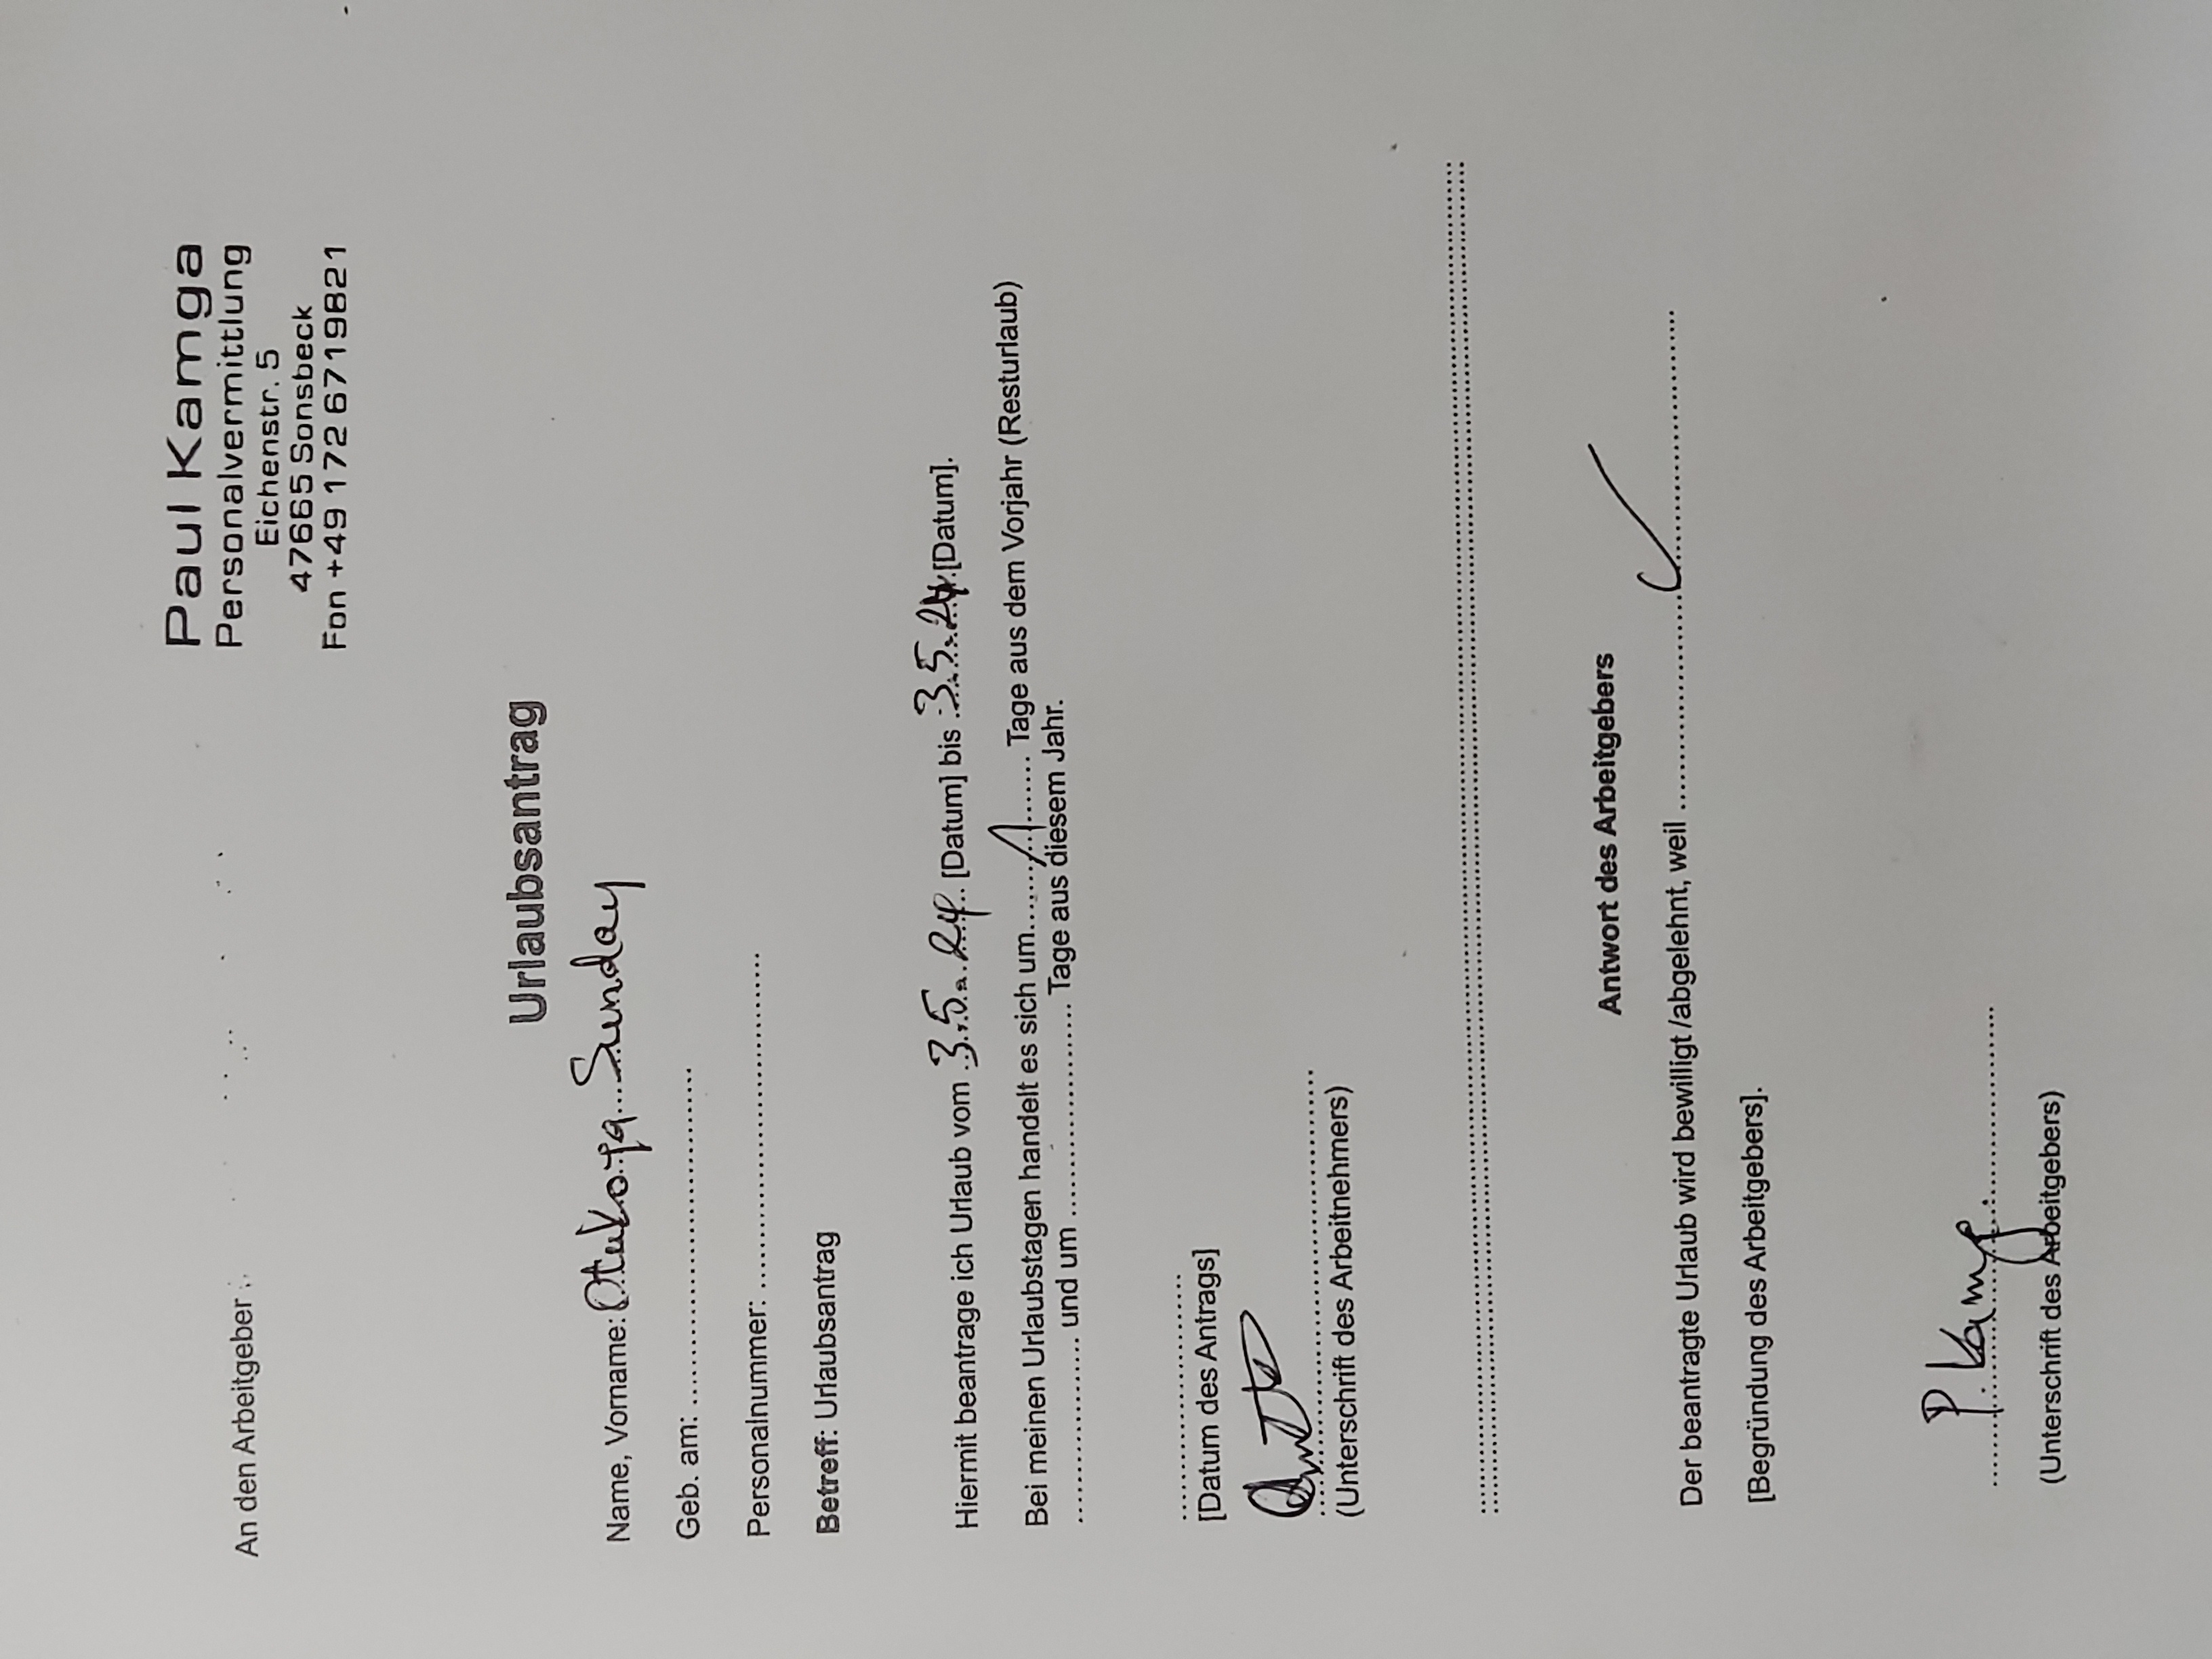 Paul Kamga
Personalvermittlung
Eichenstr. 5
47665 Sonsbeck
Fon +49 172 6719821
An den Arbeitgeber
Urlaubsantrag
Name, Vorname: Otukoya Sunday
Geb. am: ..................................
Personalnummer: ..................................
Betreff: Urlaubsantrag
Hiermit beantrage ich Urlaub vom 3.5.24 [Datum] bis 3.5.24 [Datum].
Bei meinen Urlaubstagen handelt es sich um.......1....... Tage aus dem Vorjahr (Resturlaub)
................... und um ...................... Tage aus diesem Jahr.
[Datum des Antrags]
(Unterschrift des Arbeitnehmers)
Antwort des Arbeitgebers
Der beantragte Urlaub wird bewilligt /abgelehnt, weil ..................................................
[Begründung des Arbeitgebers].
P. Kamg.
(Unterschrift des Arbeitgebers)